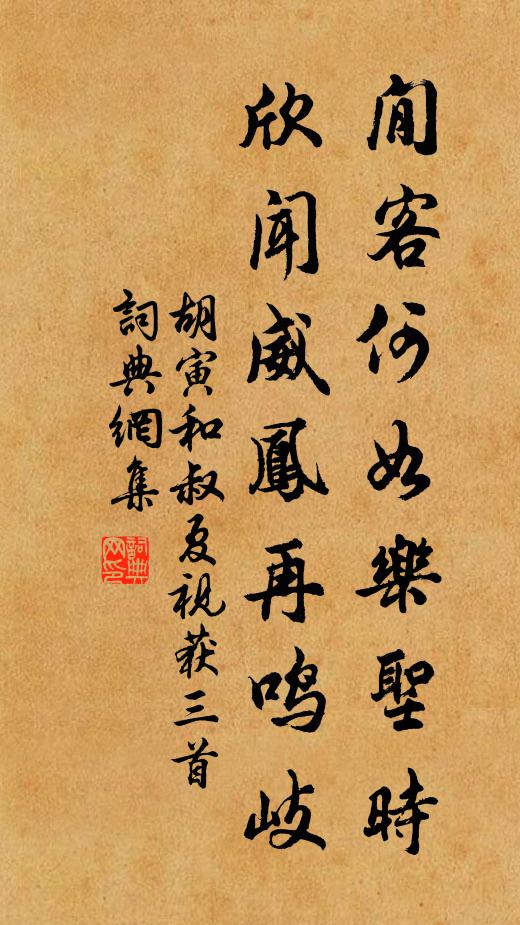 閒客何如樂聖時
欣聞威鳳再鳴岐
胡寅和叔夏視获三首
詞典網集
詞典网印